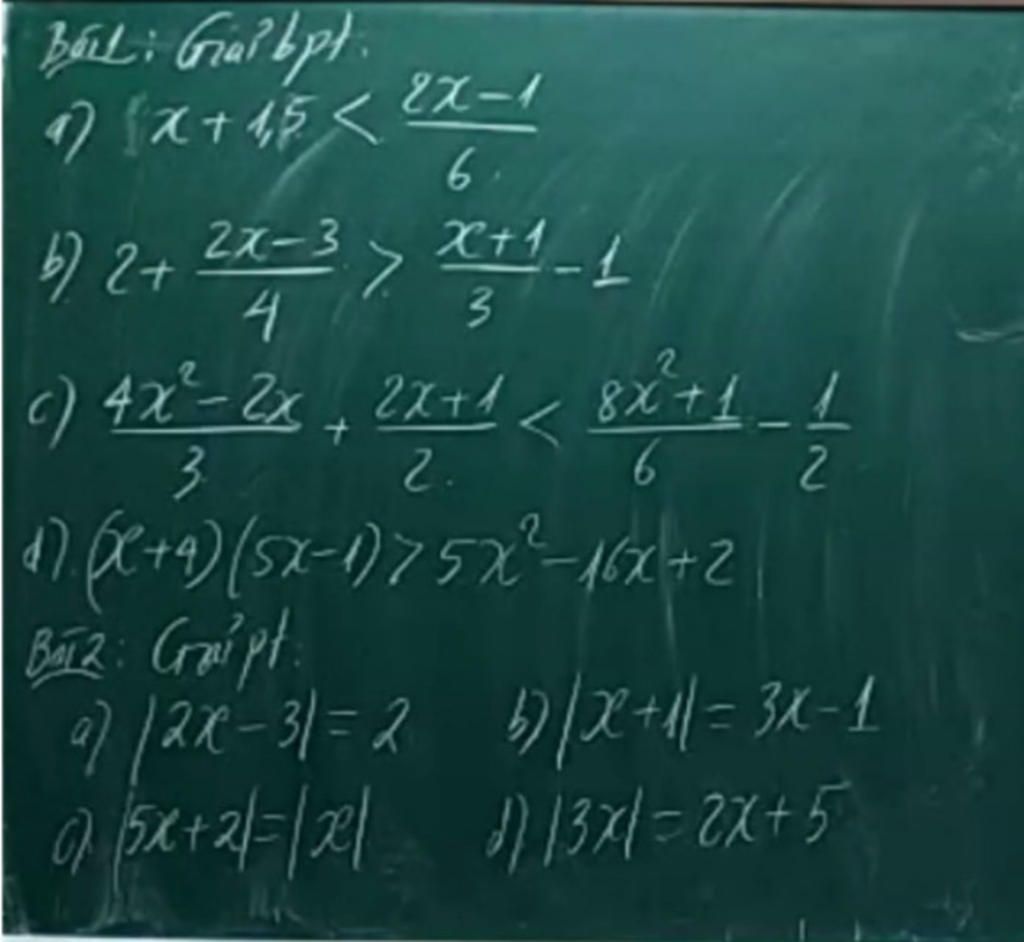 Bài 1: Giải bpt:
a) x + 1,5 < \frac{2x-1}{6}
b) 2 + \frac{2x-3}{4} > \frac{x+1}{3} - 1
c) \frac{4x^2-2x}{3} + \frac{2x+1}{2} < \frac{8x^2+1}{6} - \frac{1}{2}
d) (x+4)(5x-1) > 5x^2 - 16x + 2
Bài 2: Giải pt:
a) |2x-3| = 2 b) |x+1| = 3x-1
c) |5x+2| = |x| d) |3x| = 2x+5